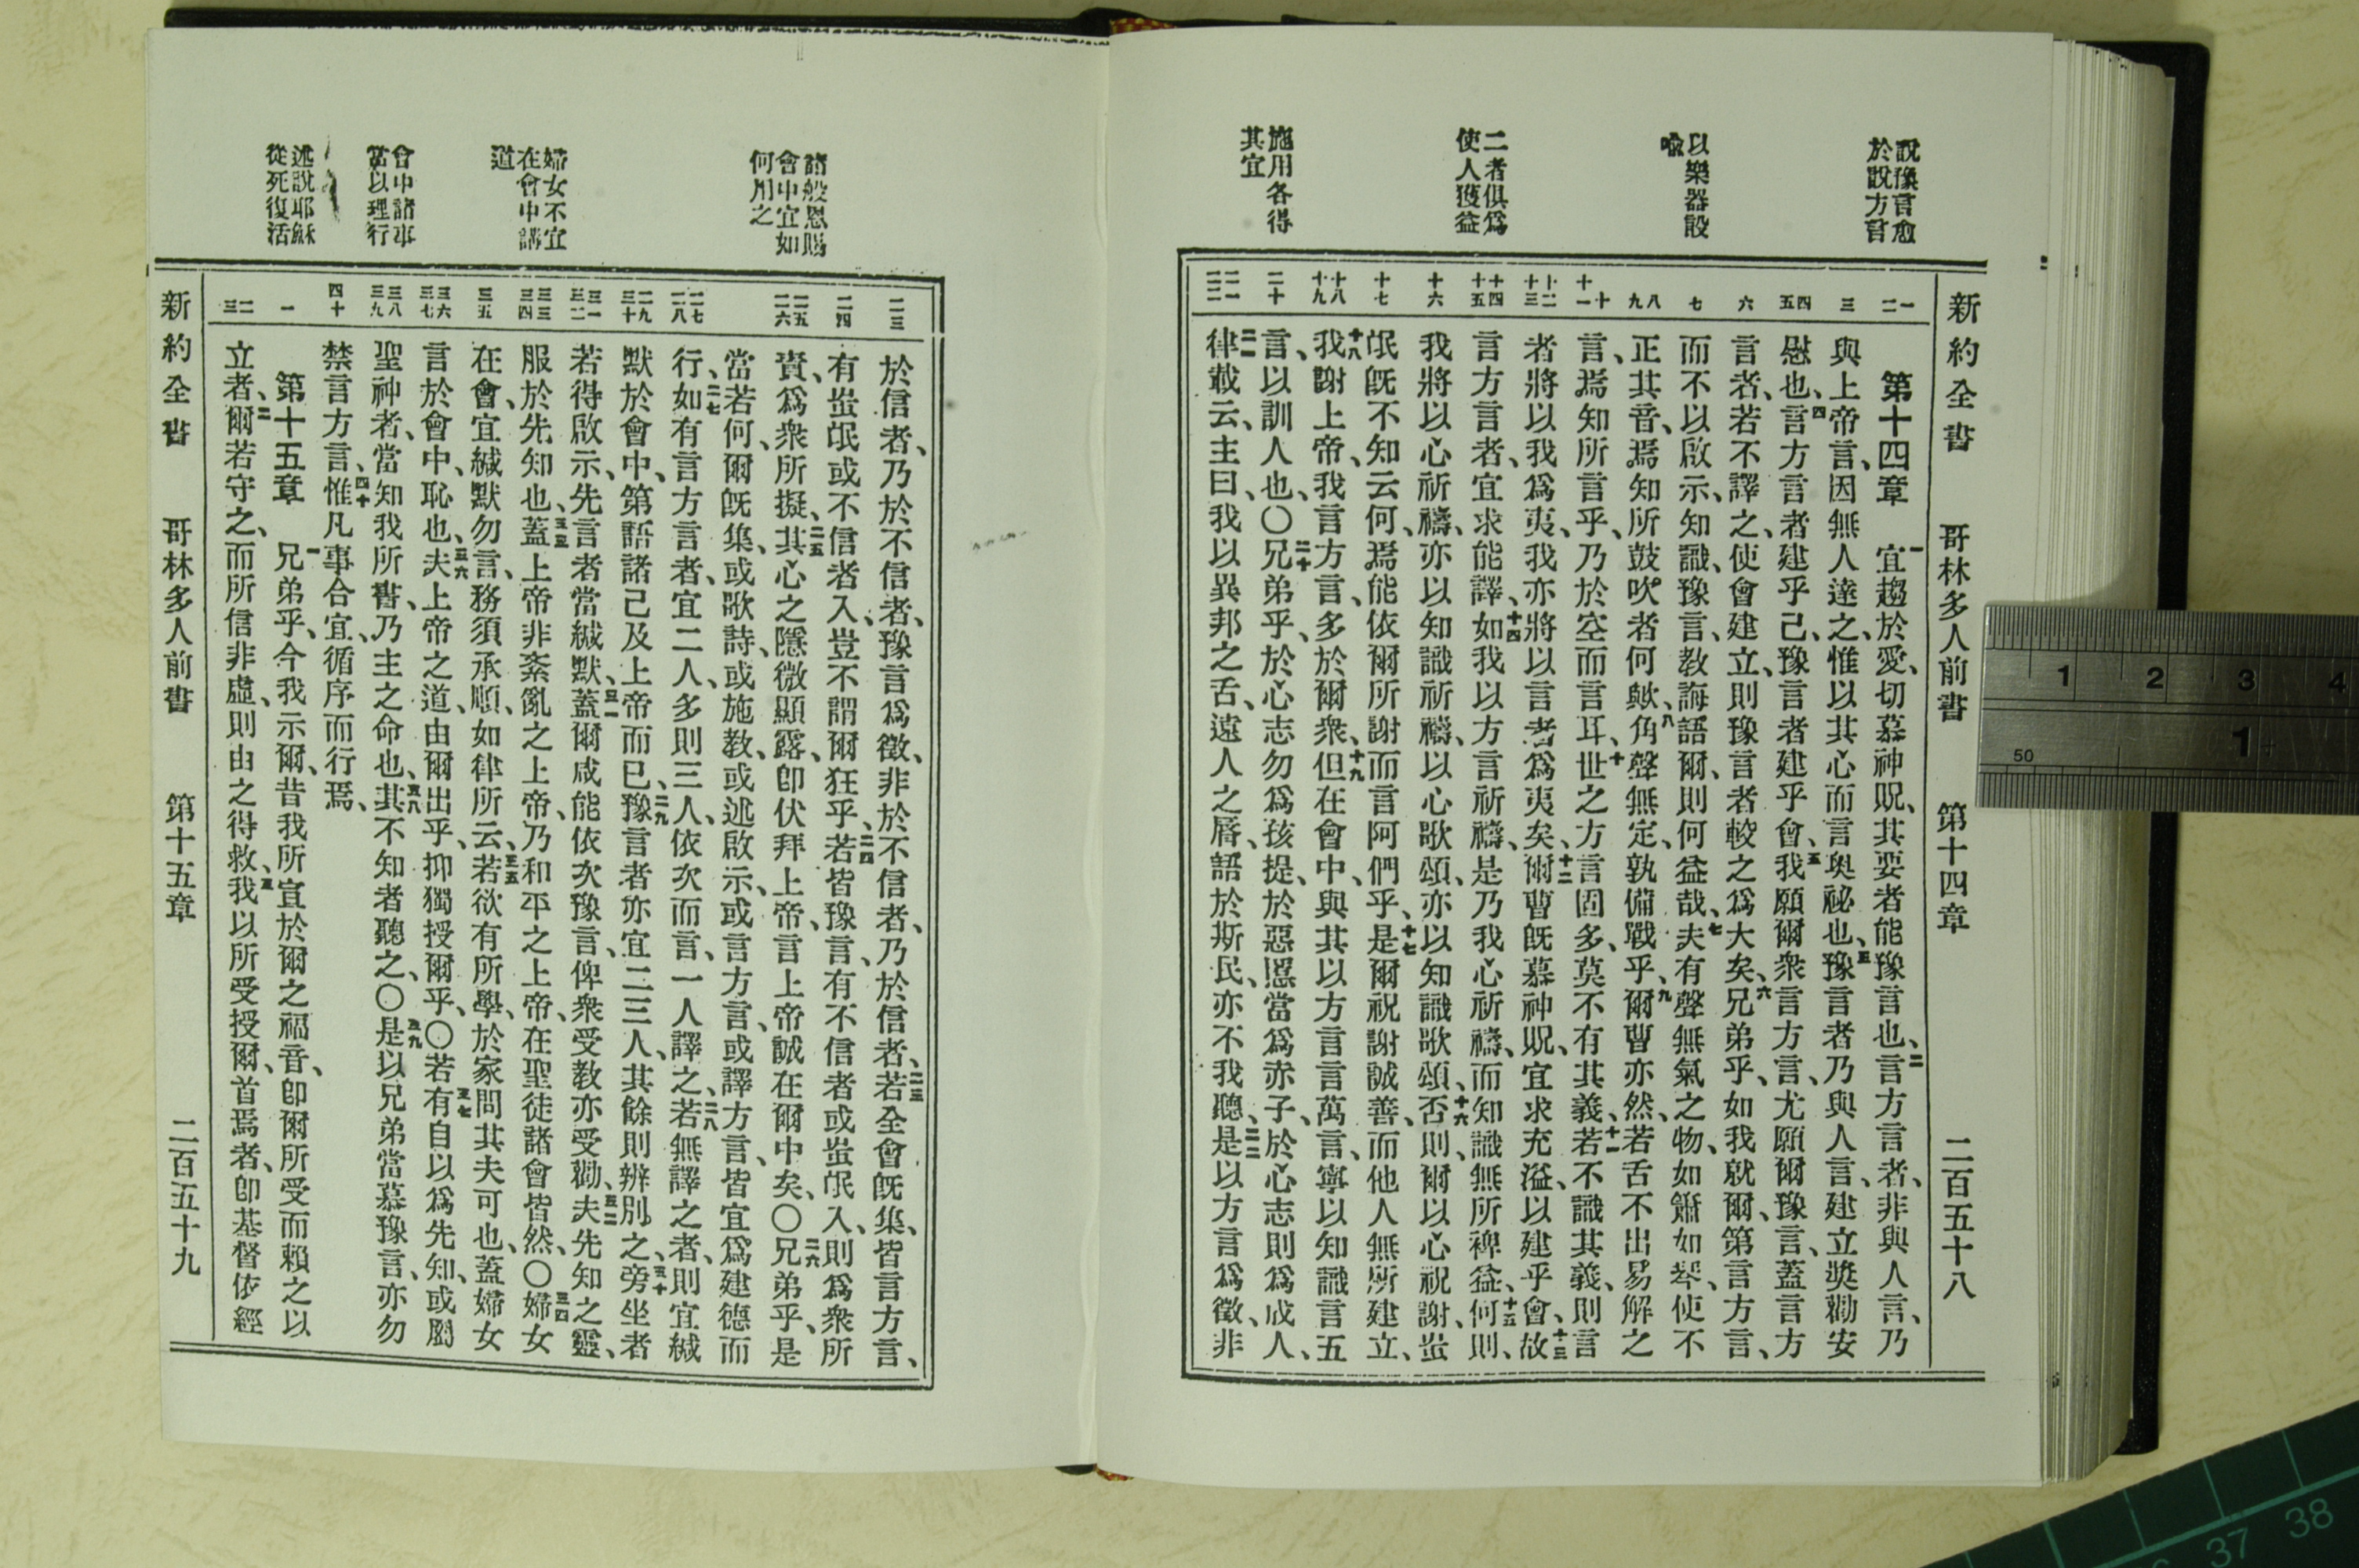 說豫言愈
於說方言
以樂器設
喩
二者俱爲
使人獲益
施用各得
其宜
新約全書 哥林多人前書 第十四章 二百五十八
一
二
三
四
五
六
七
八
九
十
十一
十二
十三
十四
十五
十六
十七
十八
十九
二十
二一
二二
第十四章 一宜趨於愛、切慕神貺、其要者能豫言也、二言方言者、非與人言、乃
與上帝言、因無人達之、惟以其心而言奧祕也、三豫言者乃與人言、建立奬勸安
慰也、四言方言者建乎己、豫言者建乎會、五我願爾衆言方言、尤願爾豫言、蓋言方
言者、若不譯之、使會建立、則豫言者較之爲大矣、六兄弟乎、如我就爾、第言方言、
而不以啟示、知識、豫言、教誨語爾、則何益哉、七夫有聲無氣之物、如簫如琴、使不
正其音、焉知所鼓吹者何歟、八角聲無定、孰備戰乎、九爾曹亦然、若舌不出易解之
言、焉知所言乎、乃於空而言耳、十世之方言固多、莫不有其義、十一若不識其義、則言
者將以我爲夷、我亦將以言者爲夷矣、十二爾曹旣慕神貺、宜求充溢、以建乎會、十三故
言方言者、宜求能譯、十四如我以方言祈禱、是乃我心祈禱、而知識無所裨益、十五何則、
我將以心祈禱、亦以知識祈禱、以心歌頌、亦以知識歌頌、十六否則、爾以心祝謝、蚩
氓旣不知云何、焉能依爾所謝而言阿們乎、十七是爾祝謝誠善、而他人無所建立、
十八我謝上帝、我言方言、多於爾衆、十九但在會中、與其以方言言萬言、寧以知識言五
言、以訓人也、〇二十兄弟乎、於心志勿爲孩提、於惡慝當爲赤子、於心志則爲成人、
二一律載云、主曰、我以異邦之舌、遠人之唇、語於斯民、亦不我聽、二二是以方言爲徵、非
諸般恩賜
會中宜如
何用之
婦女不宜
在會中講
道
會中諸事
當以理行
述說耶穌
從死復活
二三
二四
二五
二六
二七
二八
二九
三十
三一
三二
三三
三四
三五
三六
三七
三八
三九
四十
一
二
三
於信者、乃於不信者、豫言爲徵、非於不信者、乃於信者、二三若全會旣集、皆言方言、
有蚩氓或不信者入、豈不謂爾狂乎、二四若皆豫言、有不信者或蚩氓入、則爲衆所
責、爲衆所擬、二五其心之隱微顯露、卽伏拜上帝、言上帝誠在爾中矣、〇二六兄弟乎、是
當若何、爾旣集、或歌詩、或施教、或述啟示、或言方言、或譯方言、皆宜爲建德而
行、二七如有言方言者、宜二人、多則三人、依次而言、一人譯之、二八若無譯之者、則宜緘
默於會中、第語諸己及上帝而已、二九豫言者亦宜二三人、其餘則辨別之、三十旁坐者
若得啟示、先言者當緘默、三一蓋爾咸能依次豫言、俾衆受教亦受勸、三二夫先知之靈、
服於先知也、三三蓋上帝非紊亂之上帝、乃和平之上帝、在聖徒諸會皆然、〇三四婦女
在會、宜緘默勿言、務須承順、如律所云、三五若欲有所學、於家問其夫可也、蓋婦女
言於會中、恥也、三六夫上帝之道、由爾出乎、抑獨授爾乎、〇三七若有自以爲先知、或屬
聖神者、當知我所書、乃主之命也、三八其不知者聽之、〇三九是以兄弟當慕豫言、亦勿
禁言方言、四十惟凡事合宜、循序而行焉、
第十五章 一兄弟乎、今我示爾、昔我所宣於爾之福音、卽爾所受而賴之以
立者、二爾若守之、而所信非虛、則由之得救、三我以所受授爾、首焉者、卽基督依經
新約全書 哥林多人前書 第十五章 二百五十九
1 2 3 4
50
1
37 38